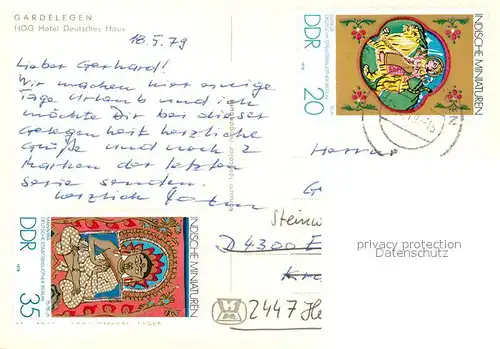 GARDELEGEN
HOG Hotel Deutsches Haus
18.5.79
Lieber Gerhard!
Wir machen hier einige
Tage Urlaub und ich
möchte Dir bei dieser
Gelegenheit herzliche
Grüße und noch 2
Marken der letzten
Serie senden.
Herzlich
INDISCHE MINIATUREN
DDR 20
DEUTSCHE STAATSBIBLIOTHEK BERLIN
INDISCHE MINIATUREN
DDR 35
DEUTSCHE STAATSBIBLIOTHEK BERLIN
Herrn
G
Steinw
D 4300 E
Kr
2447 He
privacy protection
Datenschutz